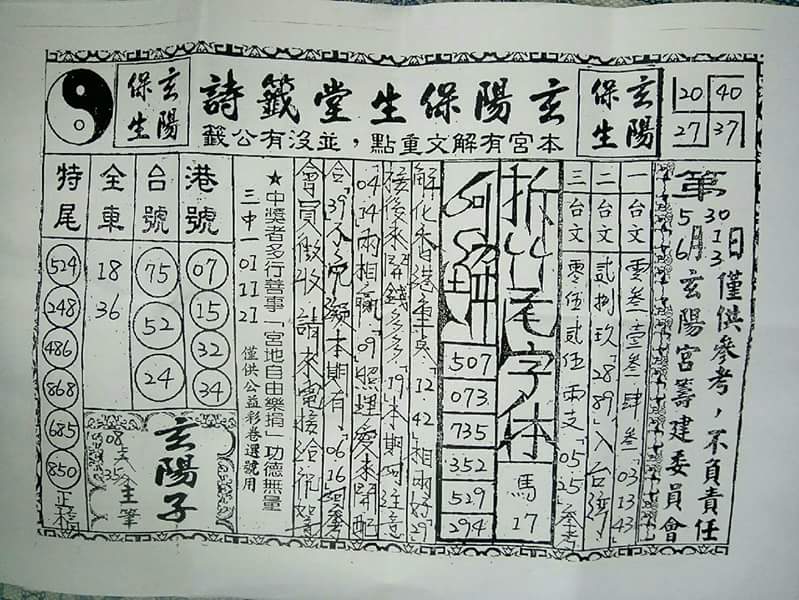 玄陽保生
玄陽保生堂籤詩
玄陽保生
本宮有解文重點，並沒有公籤
20 40
27 37
第
5月30日
6 13
僅供參考，不負責任
玄陽宮籌建委員會
一台文 零叁 壹叁 肆叁「03.13.43
二台文 貳捌玖「28.89」入台灣
三台文 零伍貳伍兩支「05.25」參考
拆竹尾字体
馬17
507
073
735
352
529
294
解化香港重点「12.42」相兩好「29」
接後來
錢多多「19」本期可注意
「04.14」兩相
「09」照理愛來開配
合「39」
本期有「06.16」
會員做收 請來電接洽
★中獎者多行善事「宮地自由樂捐」功德無量
三中一 01 11 21 僅供公益彩卷選號用
港號
07
15
32
34
台號
75
52
24
全車
18
36
特尾
524
248
486
868
685
850
玄陽子
主筆
08支35